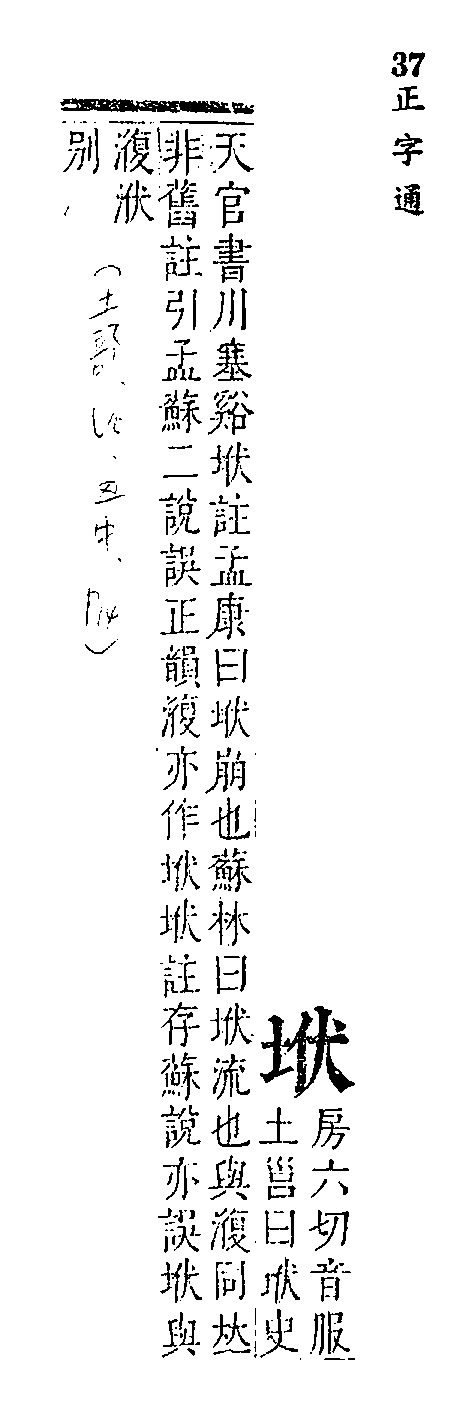 37
正字通
垘
房六切音服
土邕曰垘史
天官書川塞谿垘註孟康曰垘崩也蘇林曰垘流也與澓同𠀤
非舊註引孟蘇二說誤正韻澓亦作垘垘註存蘇說亦誤垘與
澓洑
別
（土部、丑中、P14）